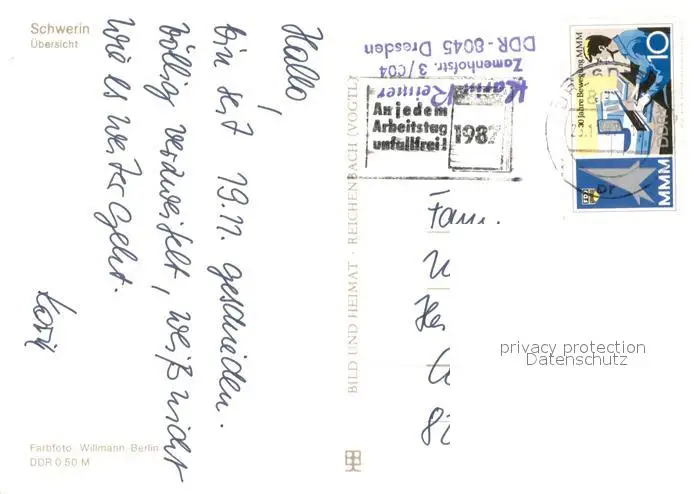 Schwerin
Übersicht
Hallo!
bin seit 19.11. geschieden.
völlig verzweifelt, weiß nicht
wie es weiter geht.
Farbfoto Willmann Berlin
DDR 0.50 M
BILD UND HEIMAT · REICHENBACH (VOGTL)
Zamenhofstr. 3/004
DDR-8045 Dresden
An jedem
Arbeitstag
unfallfrei!
1987
30 Jahre Bewegung MMM
10
DDR
MMM
Fam.
privacy protection
Datenschutz